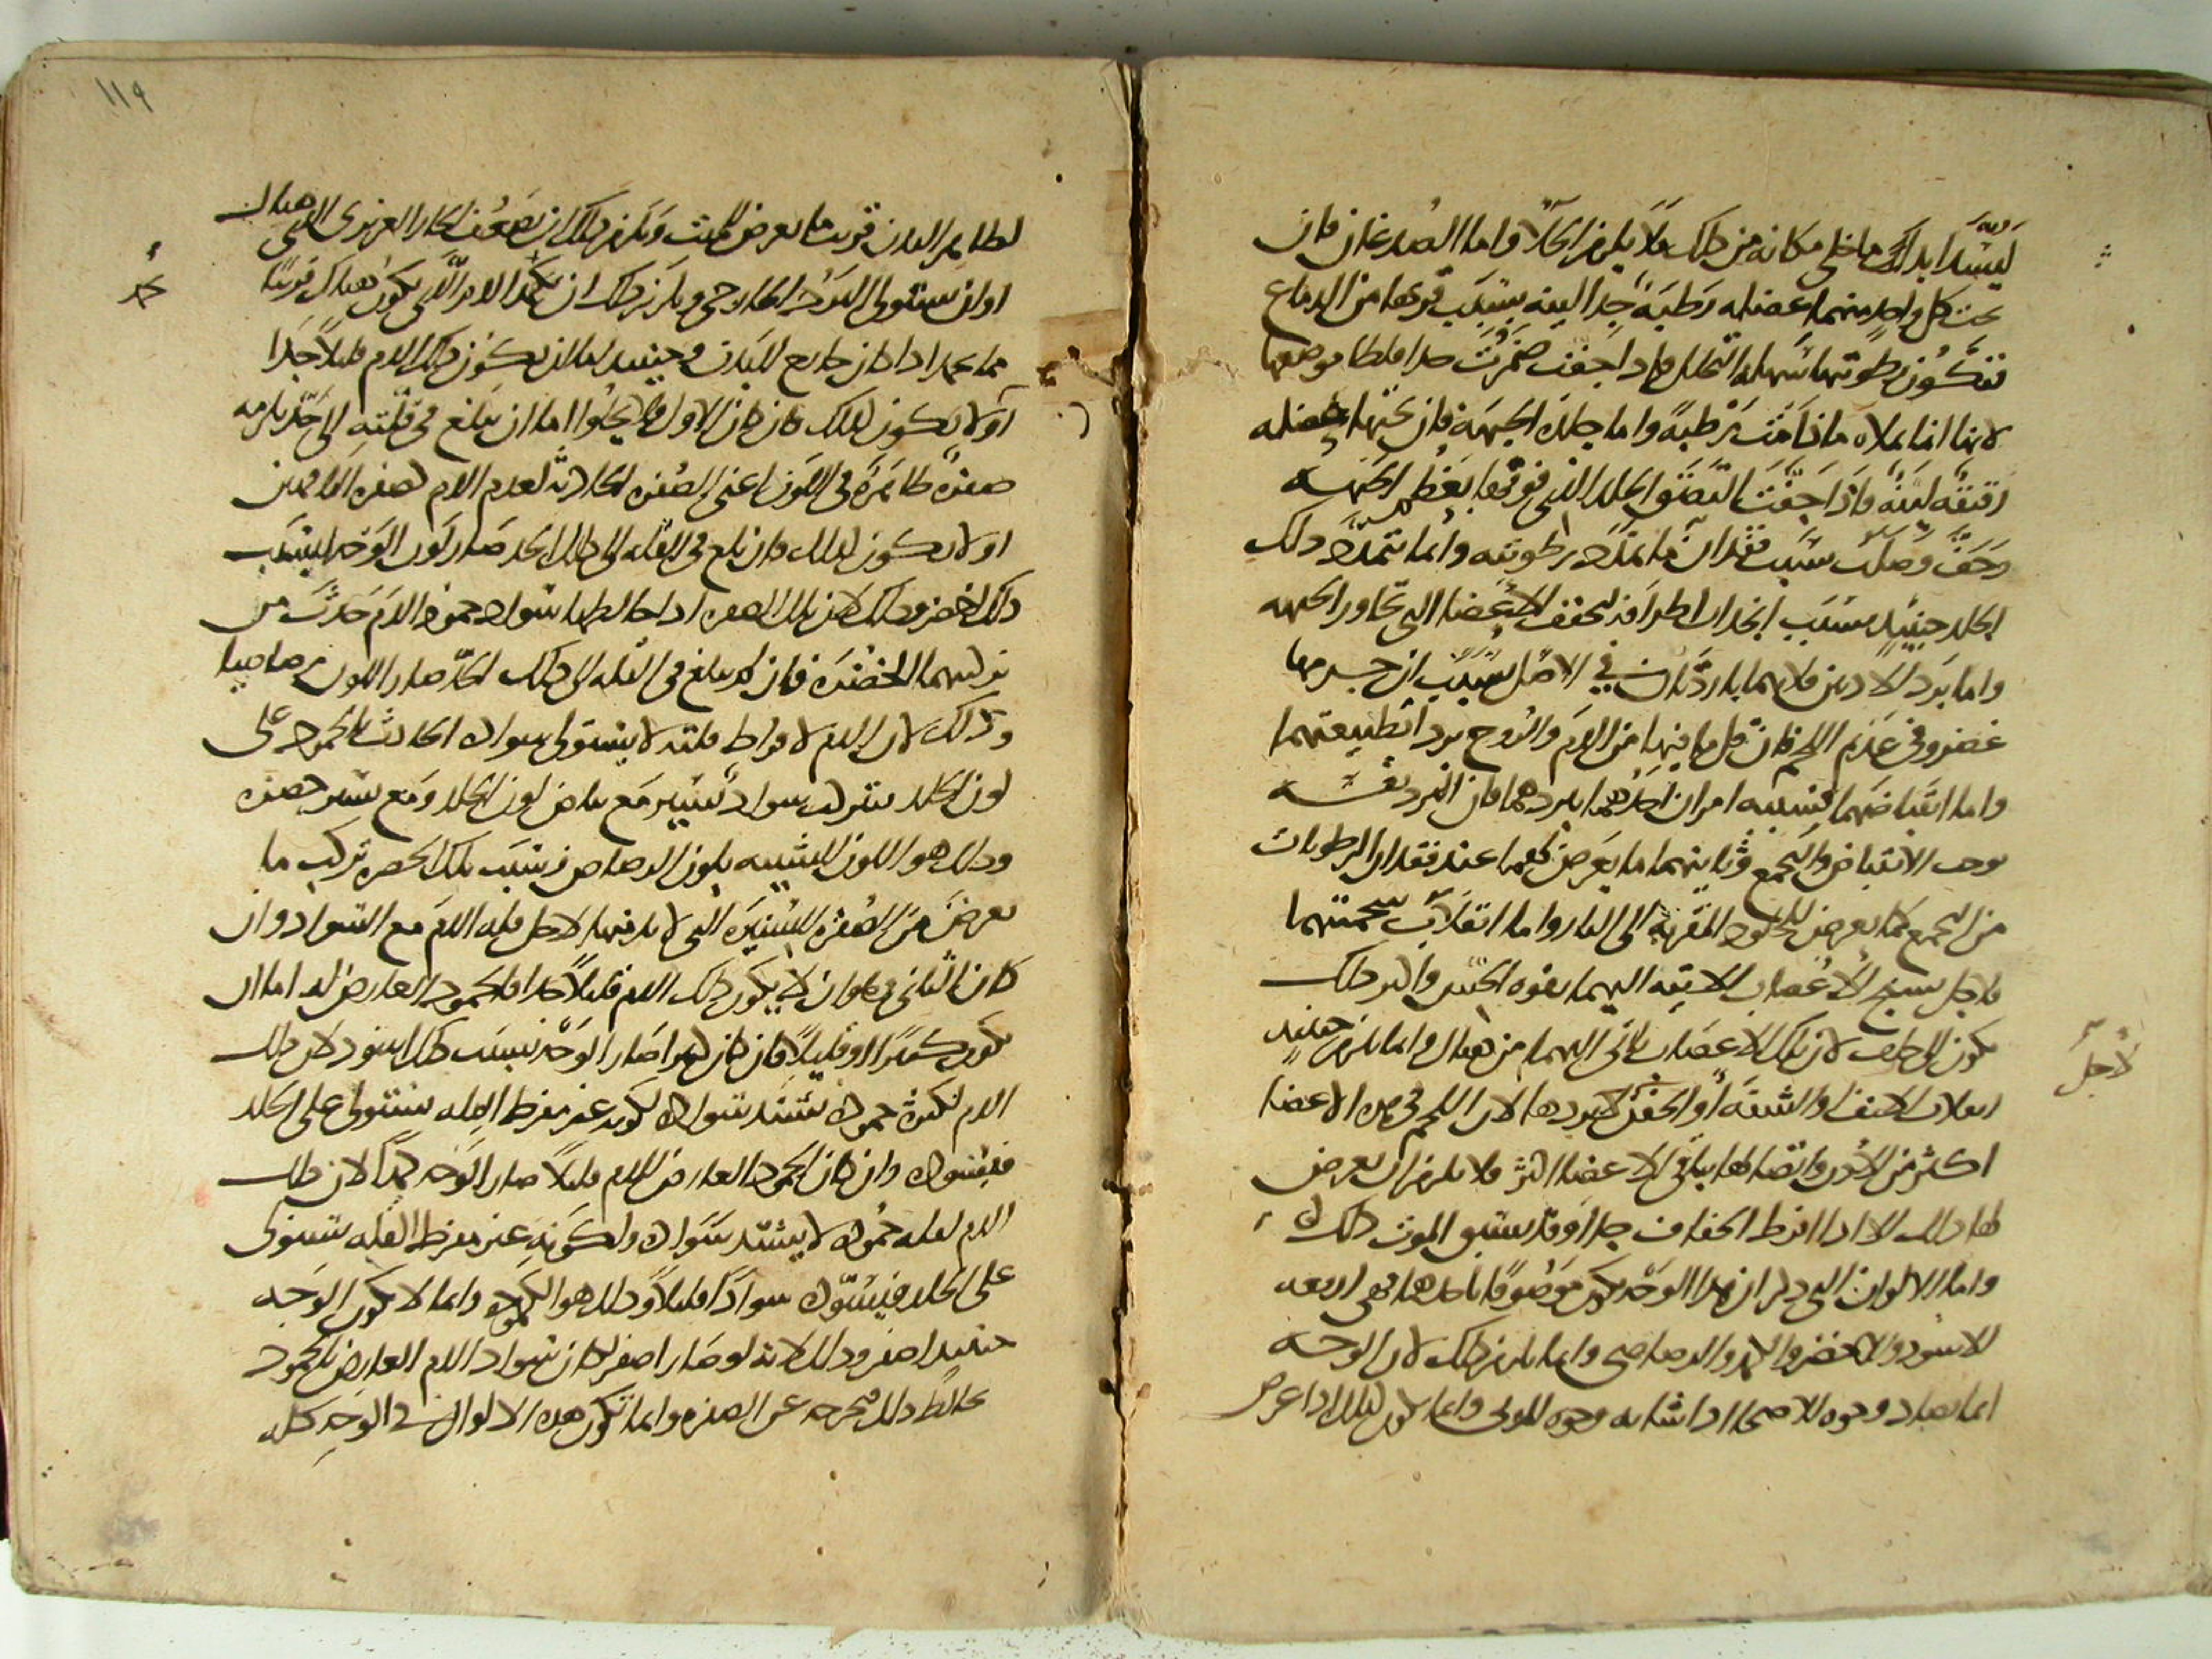 ليسد ابدا ما خلى مكانه من ذلك فلا يلزم الخلا واما الصدغان فان
تحت كل واحد منهما عضله رطبة جدا لينه بسبب قربها من الدماغ
فتكون رطوبتها سهله التحلل فاذا جفت ضمرت جدا فلطا موضعها
لانها انما تملاه ما دامت رطبة واما جلدة الجبهة فان تحتها عضله
رقيقه لينه فاذا جفت التصق الجلد الذى فوقها بعظم الجبهه
وجف وصلب بسبب فقدان ما يمده برطوبته وانما يتمدد ذلك
الجلد حينئذ بسبب انجذاب اطرافه لتجفف الاعضا التى تجاور الجبهه
واما برد الاذنين فلانهما باردتان في الاصل بسبب ان جرمهما
غضروفى عديم اللحم فاذا قل ما فيها من الدم والروح بردا بطبيعتهما
واما انقباضهما فسببه امران احدهما بردهما فان البرد نفسه
يوجب الانقباض والتجمع وثانيهما ما يعرض لهما عند فقدان الرطوبات
من التجمع كما يعرض للجلود المقربة الى النار واما انقلاب شحمتهما
فلاجل تشنج الاعصاب الاتيه اليهما بقوة الحس واكثر ذلك
يكون الى خلف لان تلك الاعصاب تاتى اليهما من هناك وانما يلزم حينئذ
انقلاب الانف او الشفة او الجفن لبردها لان اللحم فى هذه الاعضا
لاجل
اكثر من الاذن واتصالها بباقى الاعضا اكثر فلا يلزم ان يعرض
لها ذلك الا اذا افرط الجفاف جدا وقد يسبق الموت ذلك
واما الالوان التى ذكر ان هذا الوجه يكون موصوفا باحدها فهى اربعه
الاسود والاخضر والكمد والرصاصى وانما يلزم ذلك لان الوجه
انما يضاد وجوه الاصحا اذا شابه وجوه الموتى وانما يكون كذلك اذا عرض
١١٩
لظاهر البدن قريب ما يعرض للميت ويلزم ذلك ان يضعف الحار الغريزى الذى هناك
او ان يستولى البرد الخارجى ويلزم ذلك ان يجمد الدم الذى يكون هناك قريبا
مما يجمد اذا كان خارج البدن وحينئذ اما ان يكون ذلك الدم قليلا جدا
او لا يكون كذلك فان كان الاول فلا يخلوا اما ان يبلغ فى قلته الى حد يلزمه
صفرة ظاهرة فى اللون اعنى الصفرة الحادثة لعدم الدم كصفرة الناقهين
او لا يكون كذلك فان بلغ فى القله الى ذلك الحد صار لون الوجه بسبب
ذلك اخضر وذلك لان تلك الصفرة اذا خالطها سواد جمود الدم حدث من
تركيبهما الخضرة فان لم يبلغ فى القله الى ذلك الحد صار اللون رصاصيا
وذلك لان الدم لافراط قلته لا يستولى سواده الحادث بالجمود على
لون الجلد فتركب سواد يسير مع بياض لون الجلد ومع يسير خضرة
وذلك هو اللون الشبيه بلون الرصاص فبسبب تلك الخضرة تركيب ما
يعرض من الصفرة اليسيرة التى لا بد منها لاجل قله الدم مع السواد وان
كان الثانى وهو ان لا يكون ذلك الدم قليلا جدا فالجمود العارض له اما ان
يكون كثيرا او قليلا فان كان كثيرا صار الوجه بسبب ذلك اسود لان ذلك
الدم لكثرة جموده يشتد سواده ولكونه غير مفرط القله يستولى على الجلد
فيسوده وان كان الجمود العارض للدم قليلا صار الوجه كمدا لان ذلك
الدم لقله جموده لا يشتد سواده ولكونه غير مفرط القله يستولى
على الجلد فيسوده سوادا قليلا وذلك هو الكموده وانما لا يكون الوجه
حينئذ اصفر وذلك لانه لو صار اصفر لكان سواد الدم العارض بالجمود
يخالط ذلك فيخرجه عن الصفرة وانما تكون هذه الالوان فى الوجه كله